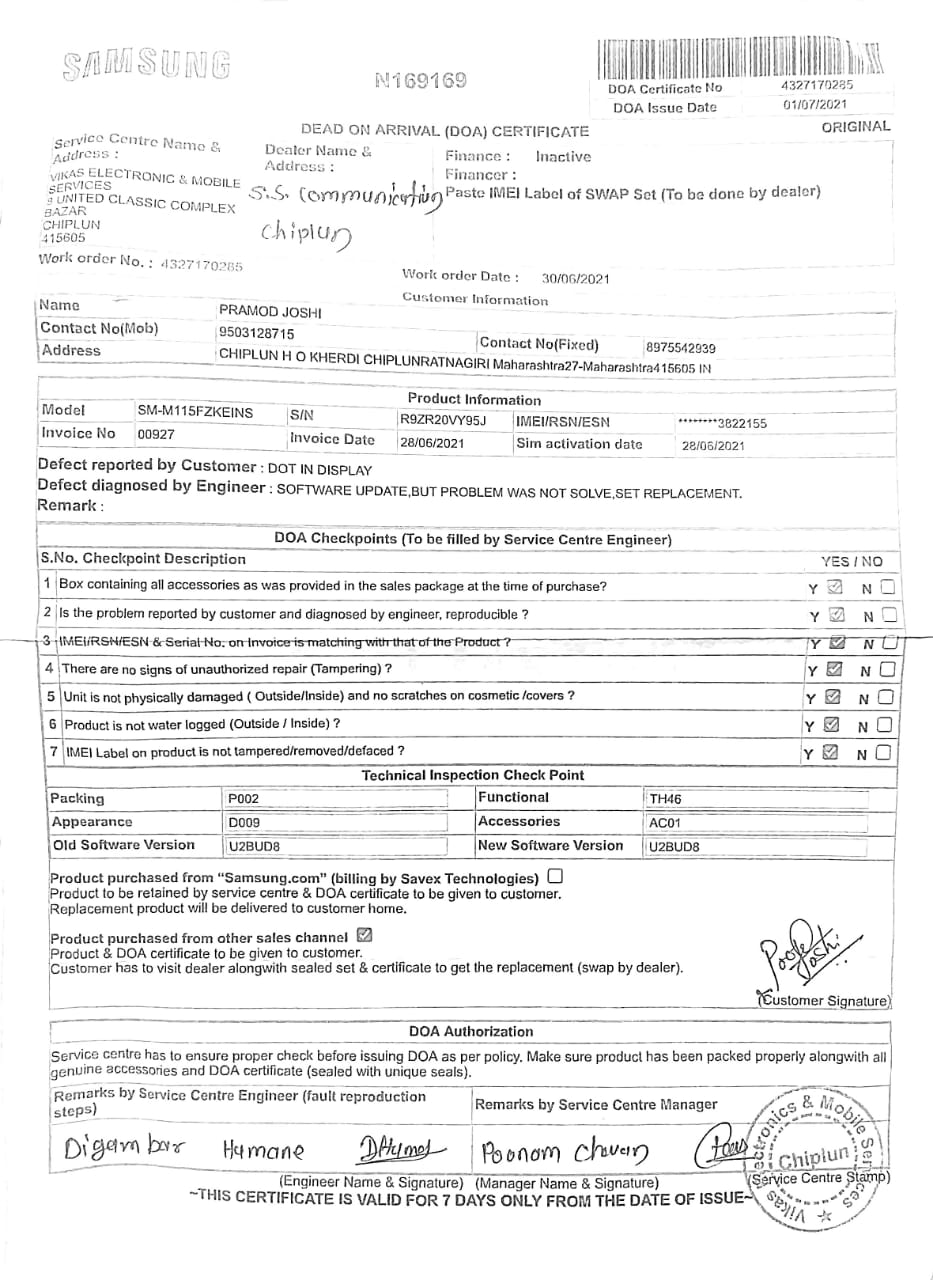 SAMSUNG
N169169
DOA Certificate No 4327170285
DOA Issue Date 01/07/2021
DEAD ON ARRIVAL (DOA) CERTIFICATE
ORIGINAL
Service Centre Name & Address :
VIKAS ELECTRONIC & MOBILE
SERVICES
9 UNITED CLASSIC COMPLEX
BAZAR
CHIPLUN
415605
Dealer Name & Address :
S.S. Communication
Chiplun
Finance : Inactive
Financer :
Paste IMEI Label of SWAP Set (To be done by dealer)
Work order No. : 4327170285
Work order Date : 30/06/2021
Customer Information
Name PRAMOD JOSHI
Contact No(Mob) 9503128715 Contact No(Fixed) 8975542939
Address CHIPLUN H O KHERDI CHIPLUNRATNAGIRI Maharashtra27-Maharashtra415605 IN
Product Information
Model SM-M115FZKEINS S/N R9ZR20VY95J IMEI/RSN/ESN ********3822155
Invoice No 00927 Invoice Date 28/06/2021 Sim activation date 28/06/2021
Defect reported by Customer : DOT IN DISPLAY
Defect diagnosed by Engineer : SOFTWARE UPDATE,BUT PROBLEM WAS NOT SOLVE,SET REPLACEMENT.
Remark :
DOA Checkpoints (To be filled by Service Centre Engineer)
S.No. Checkpoint Description YES / NO
1 Box containing all accessories as was provided in the sales package at the time of purchase? Y N
2 Is the problem reported by customer and diagnosed by engineer, reproducible ? Y N
3 IMEI/RSN/ESN & Serial No. on Invoice is matching with that of the Product ? Y N
4 There are no signs of unauthorized repair (Tampering) ? Y N
5 Unit is not physically damaged ( Outside/Inside) and no scratches on cosmetic /covers ? Y N
6 Product is not water logged (Outside / Inside) ? Y N
7 IMEI Label on product is not tampered/removed/defaced ? Y N
Technical Inspection Check Point
Packing P002 Functional TH46
Appearance D009 Accessories AC01
Old Software Version U2BUD8 New Software Version U2BUD8
Product purchased from "Samsung.com" (billing by Savex Technologies)
Product to be retained by service centre & DOA certificate to be given to customer.
Replacement product will be delivered to customer home.
Product purchased from other sales channel
Product & DOA certificate to be given to customer.
Customer has to visit dealer alongwith sealed set & certificate to get the replacement (swap by dealer).
Joshi
(Customer Signature)
DOA Authorization
Service centre has to ensure proper check before issuing DOA as per policy. Make sure product has been packed properly alongwith all
genuine accessories and DOA certificate (sealed with unique seals).
Remarks by Service Centre Engineer (fault reproduction
steps)
Remarks by Service Centre Manager
Digambar Humane Poonam Chavan
Vikas Electronics & Mobile Services
Chiplun
(Engineer Name & Signature) (Manager Name & Signature) (Service Centre Stamp)
~THIS CERTIFICATE IS VALID FOR 7 DAYS ONLY FROM THE DATE OF ISSUE~